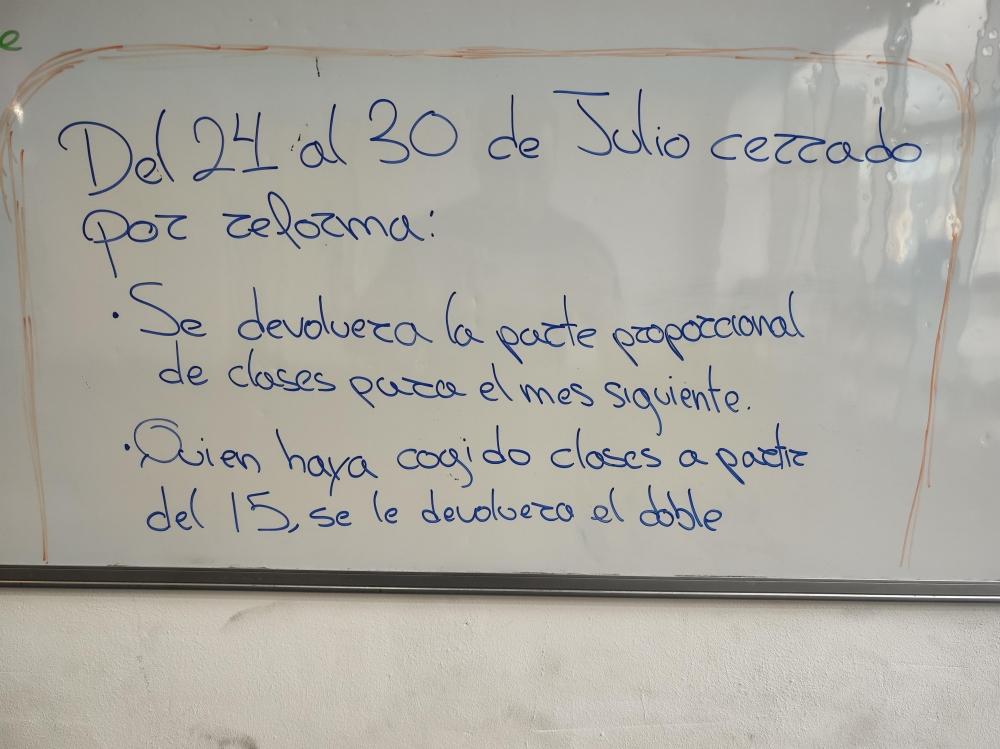 e
Del 24 al 30 de Julio cerrado
por reforma:
· Se devolvera la parte proporcional
de clases para el mes siguiente.
· Quien haya cogido clases a partir
del 15, se le devolvera el doble